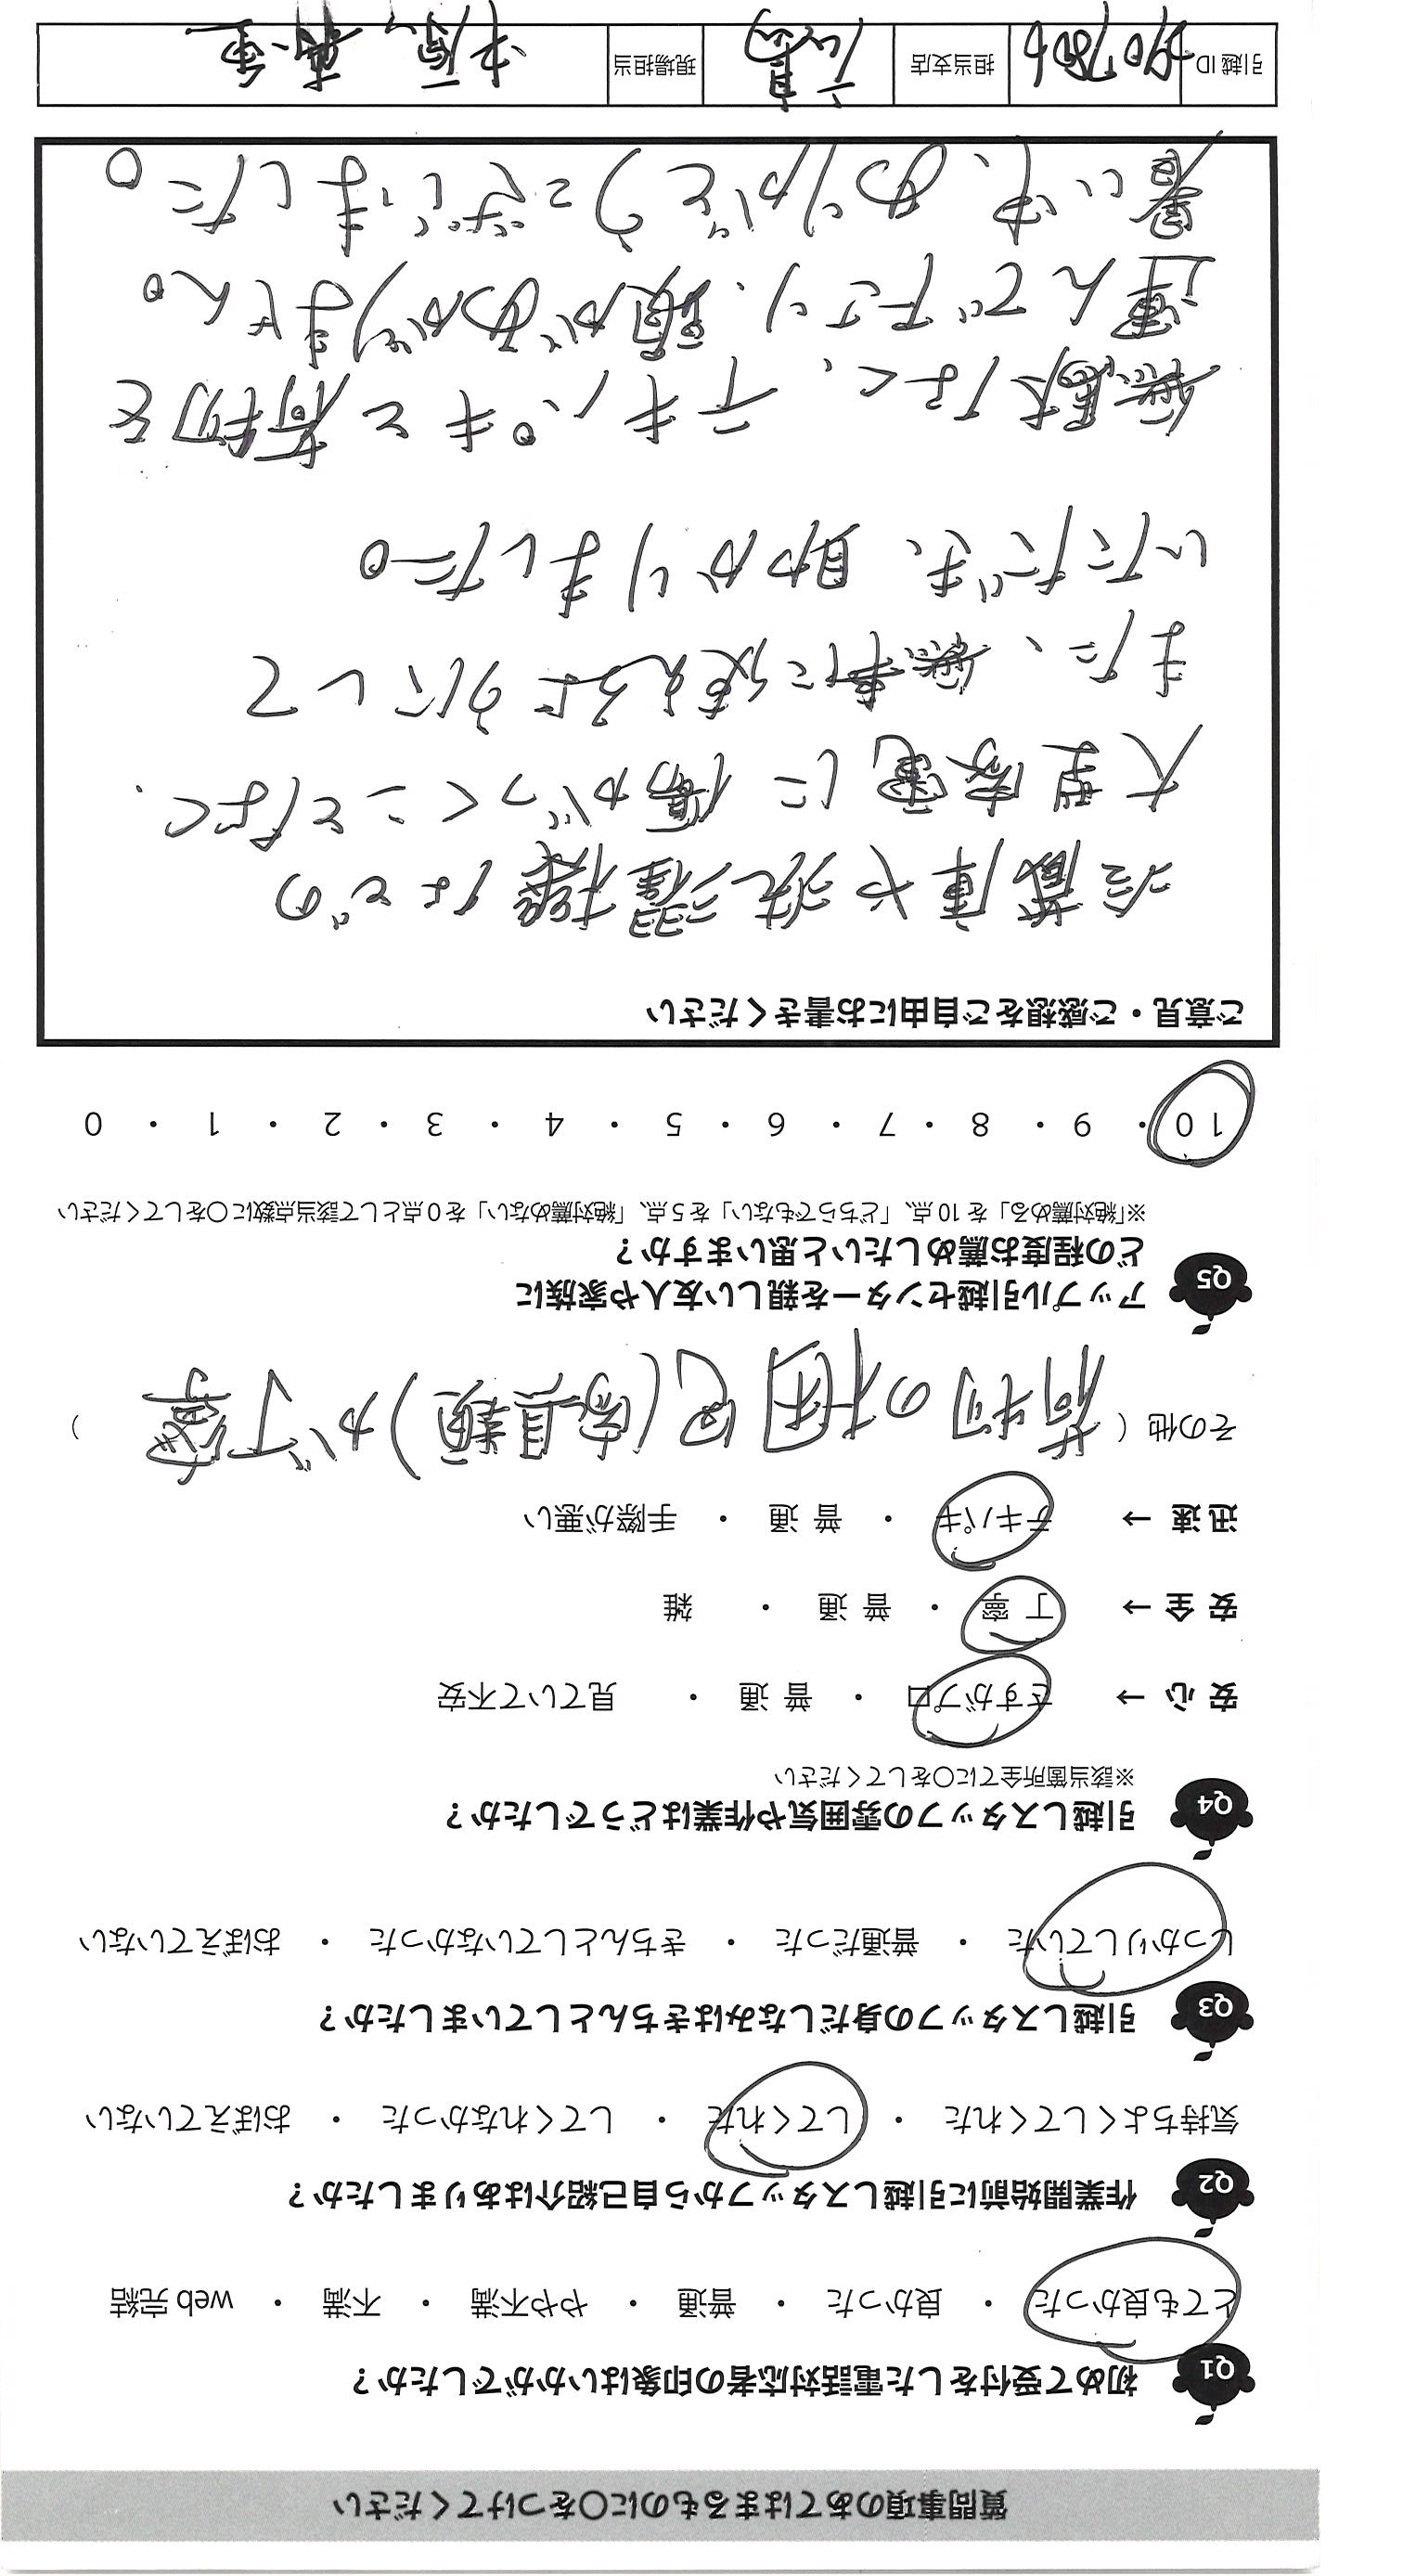 質問事項のあてはまるものに○をつけてください
Q1 初めて受付をした電話対応者の印象はいかがでしたか？
とても良かった ・ 良かった ・ 普通 ・ やや不満 ・ 不満 ・ web完結
Q2 作業開始前に引越しスタッフから自己紹介はありましたか？
気持ちよくしてくれた ・ してくれた ・ してくれなかった ・ おぼえていない
Q3 引越しスタッフの身だしなみはきちんとしていましたか？
しっかりしていた ・ 普通だった ・ きちんとしていなかった ・ おぼえていない
Q4 引越しスタッフの雰囲気や作業はどうでしたか？
※該当箇所全てに○をしてください
安心 → さすがプロ ・ 普通 ・ 見ていて不安
安全 → 丁寧 ・ 普通 ・ 雑
迅速 → テキパキ ・ 普通 ・ 手際が悪い
その他（荷物の梱包(家具類)が丁寧）
Q5 アップル引越センターを親しい友人や家族に
どの程度お薦めしたいと思いますか？
※「絶対薦める」を10点、「どちらでもない」を5点、「絶対薦めない」を0点として該当点数に○をしてください
10 ・ 9 ・ 8 ・ 7 ・ 6 ・ 5 ・ 4 ・ 3 ・ 2 ・ 1 ・ 0
ご意見・ご感想をご自由にお書きください
冷蔵庫や洗濯機などの
大型家電に傷がつくことなく、
また、無事に使えるようにして
いただき、助かりました。
無駄なく、テキパキと荷物を
運んで下さり、頭があがりません。
暑い中、ありがとうございました。
引越ID
担当支店
現場担当